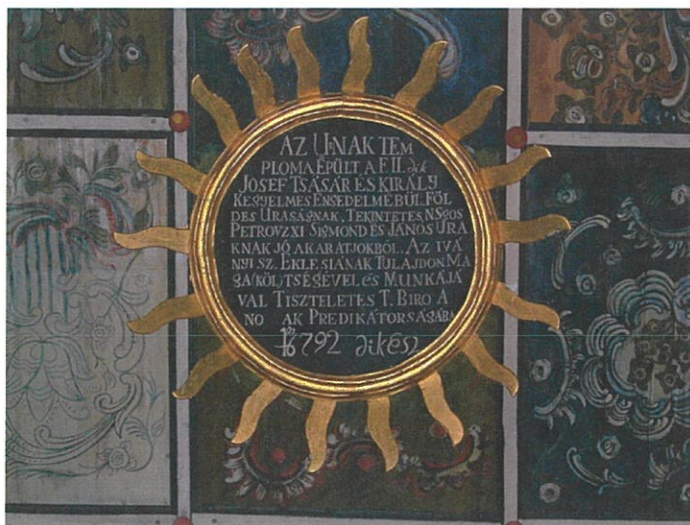 AZ ÚRNAK TEM
PLOMA ÉPÜLT A F. II. dik
JOSEF TSÁSÁR ÉS KIRÁLY
KEGYELMES ENGEDELMÉBÜL. FÖL
DES URASÁGNAK, TEKINTETES, NSGOS
PETROVZXI SIGMOND ÉS JÁNOS URA
KNAK JÓ AKARATJOKBÓL. AZ IVÁ
NYI SZ. EKLESIÁNAK TULAJDON MA
GA KÖLTSÉGÉVEL és MUNKÁJÁ
VAL TISZTELETES T. BIRO A
NO AK PREDIKÁTORSÁGÁBA
792 dikész